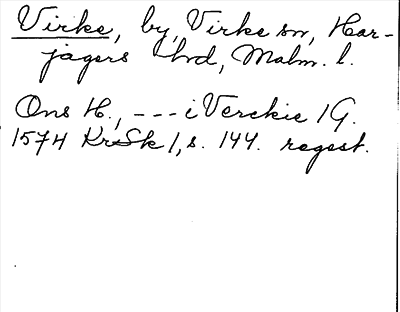 Virke, by, Virke sn, Har-
jagers hrd, Malm. l.
Ons H., --- i Verckie 1 G.
1574 KrSk 1, s. 144. regest.